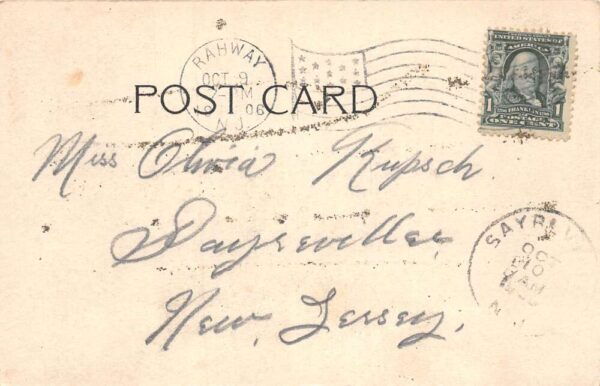 RAHWAY
OCT 9
M
06
N.J.
UNITED STATES OF
AMERICA
1 FRANKLIN 1
POSTAGE
ONE CENT
POST CARD
Miss Olivia Kupsch
Sayreville
New Jersey.
OCT
10
AM